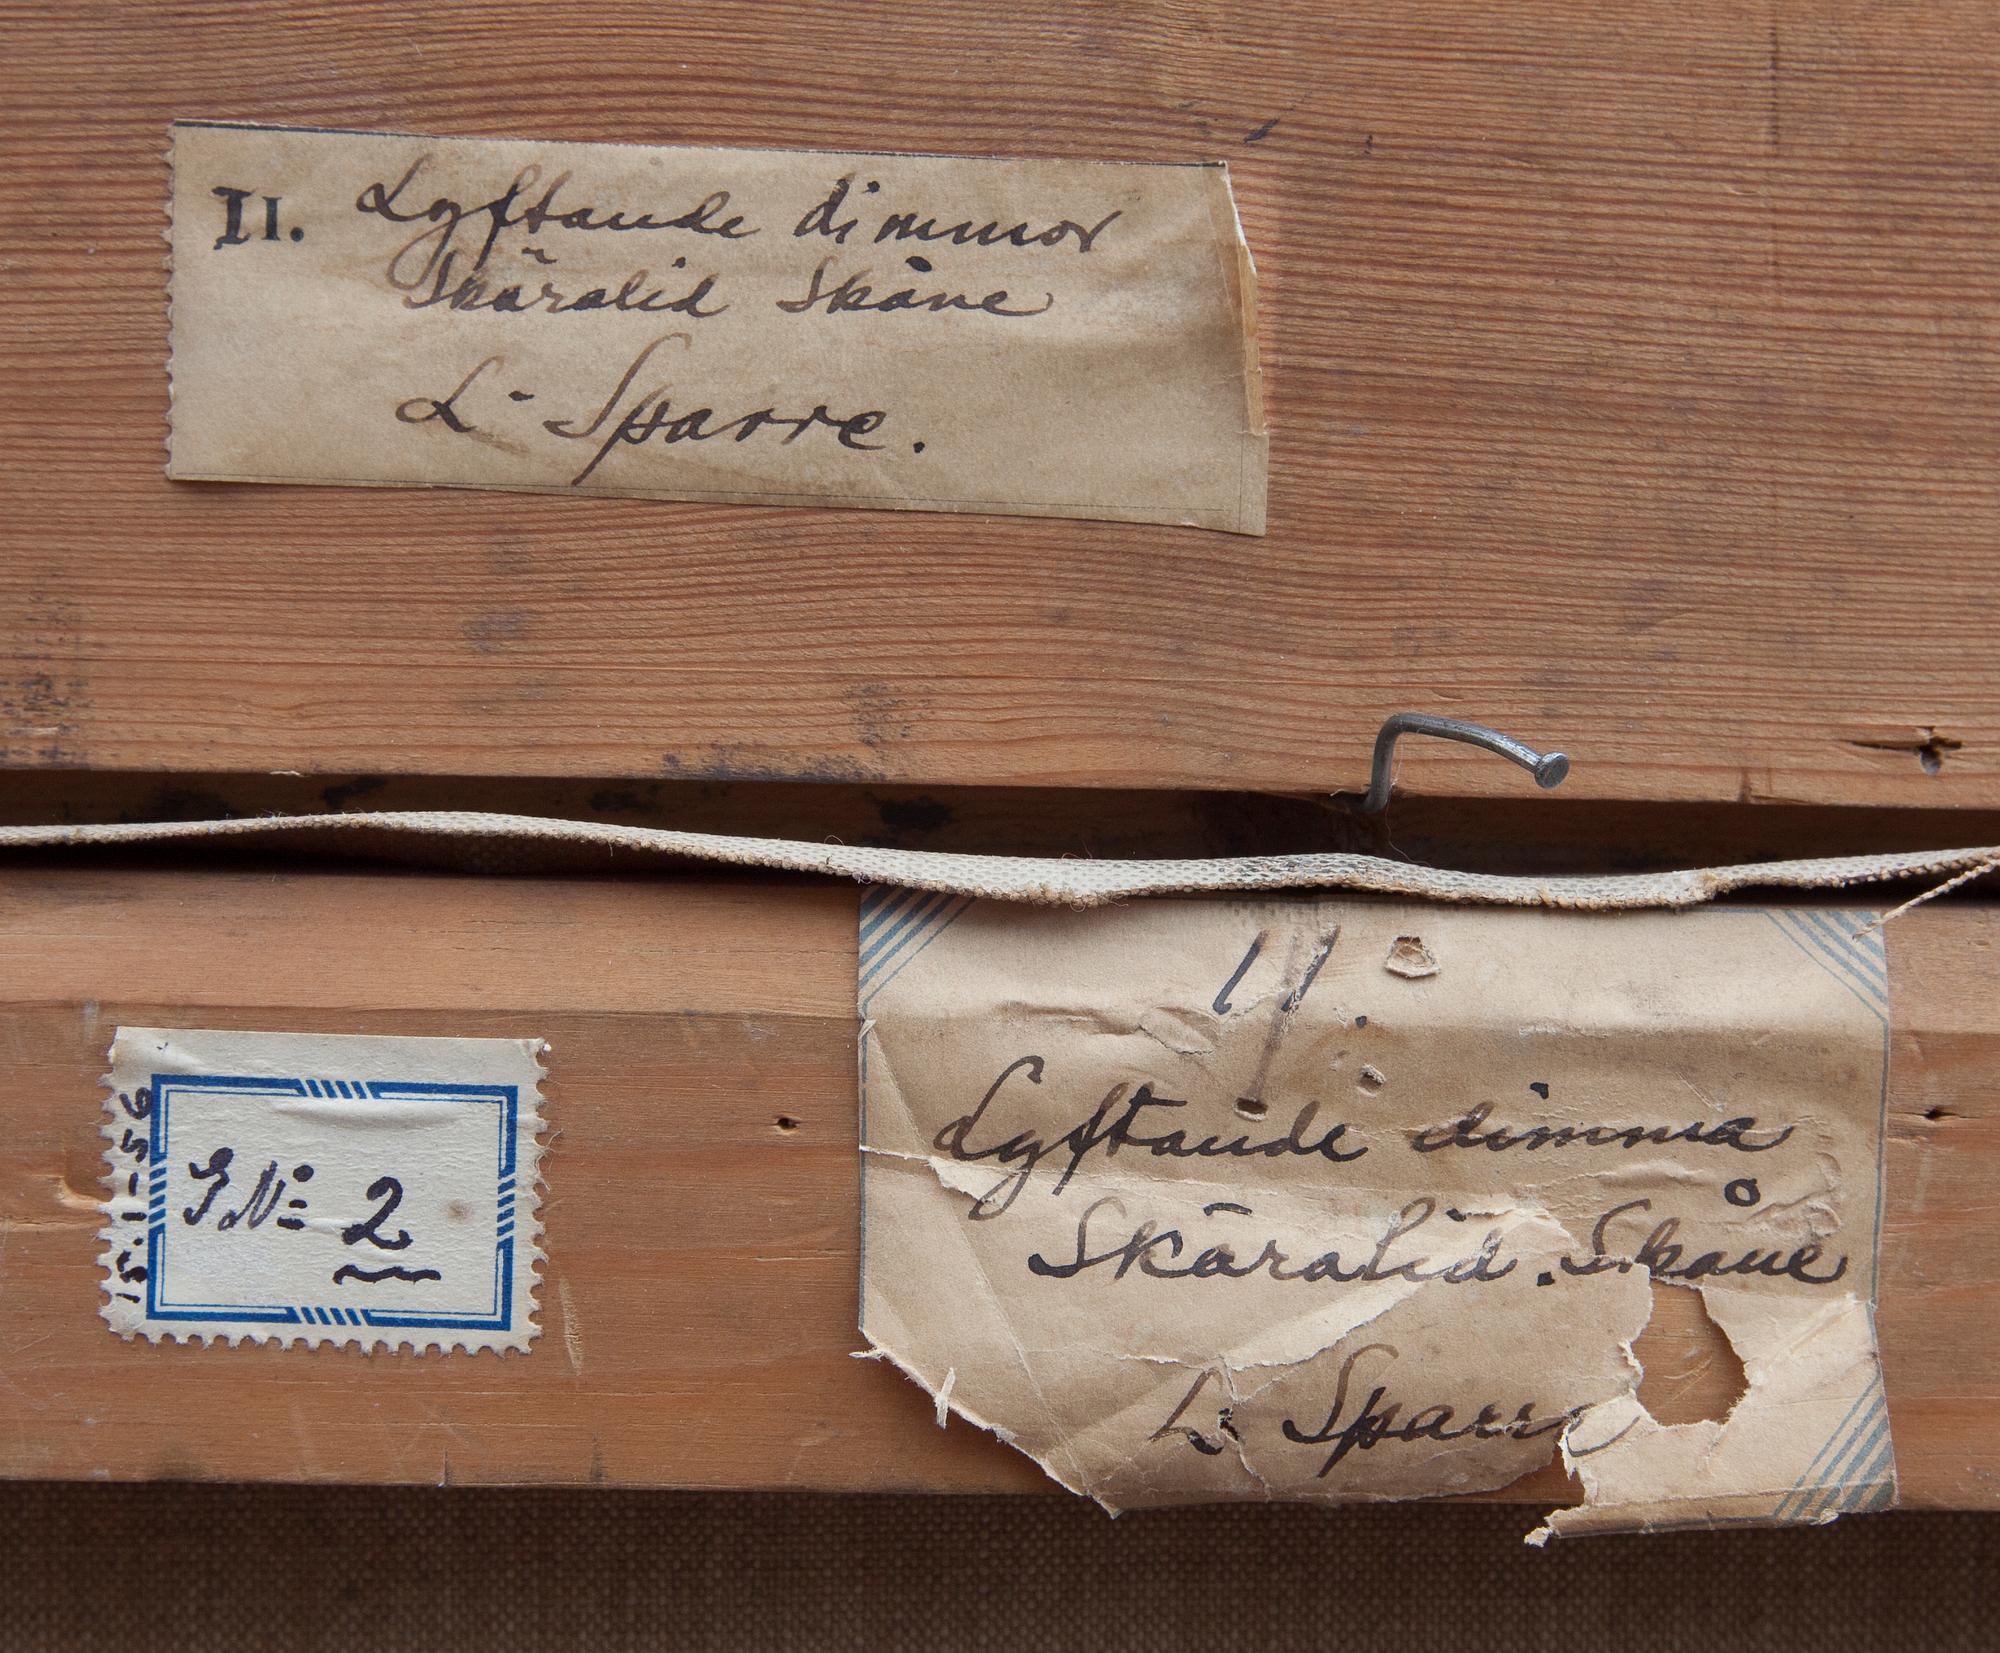 II. Lyftande dimmor
Skäralid Skåne
L. Sparre.
11.
Lyftande dimma
Skäralid. Skåne
L. Sparre
15.1-56
G Nº 2